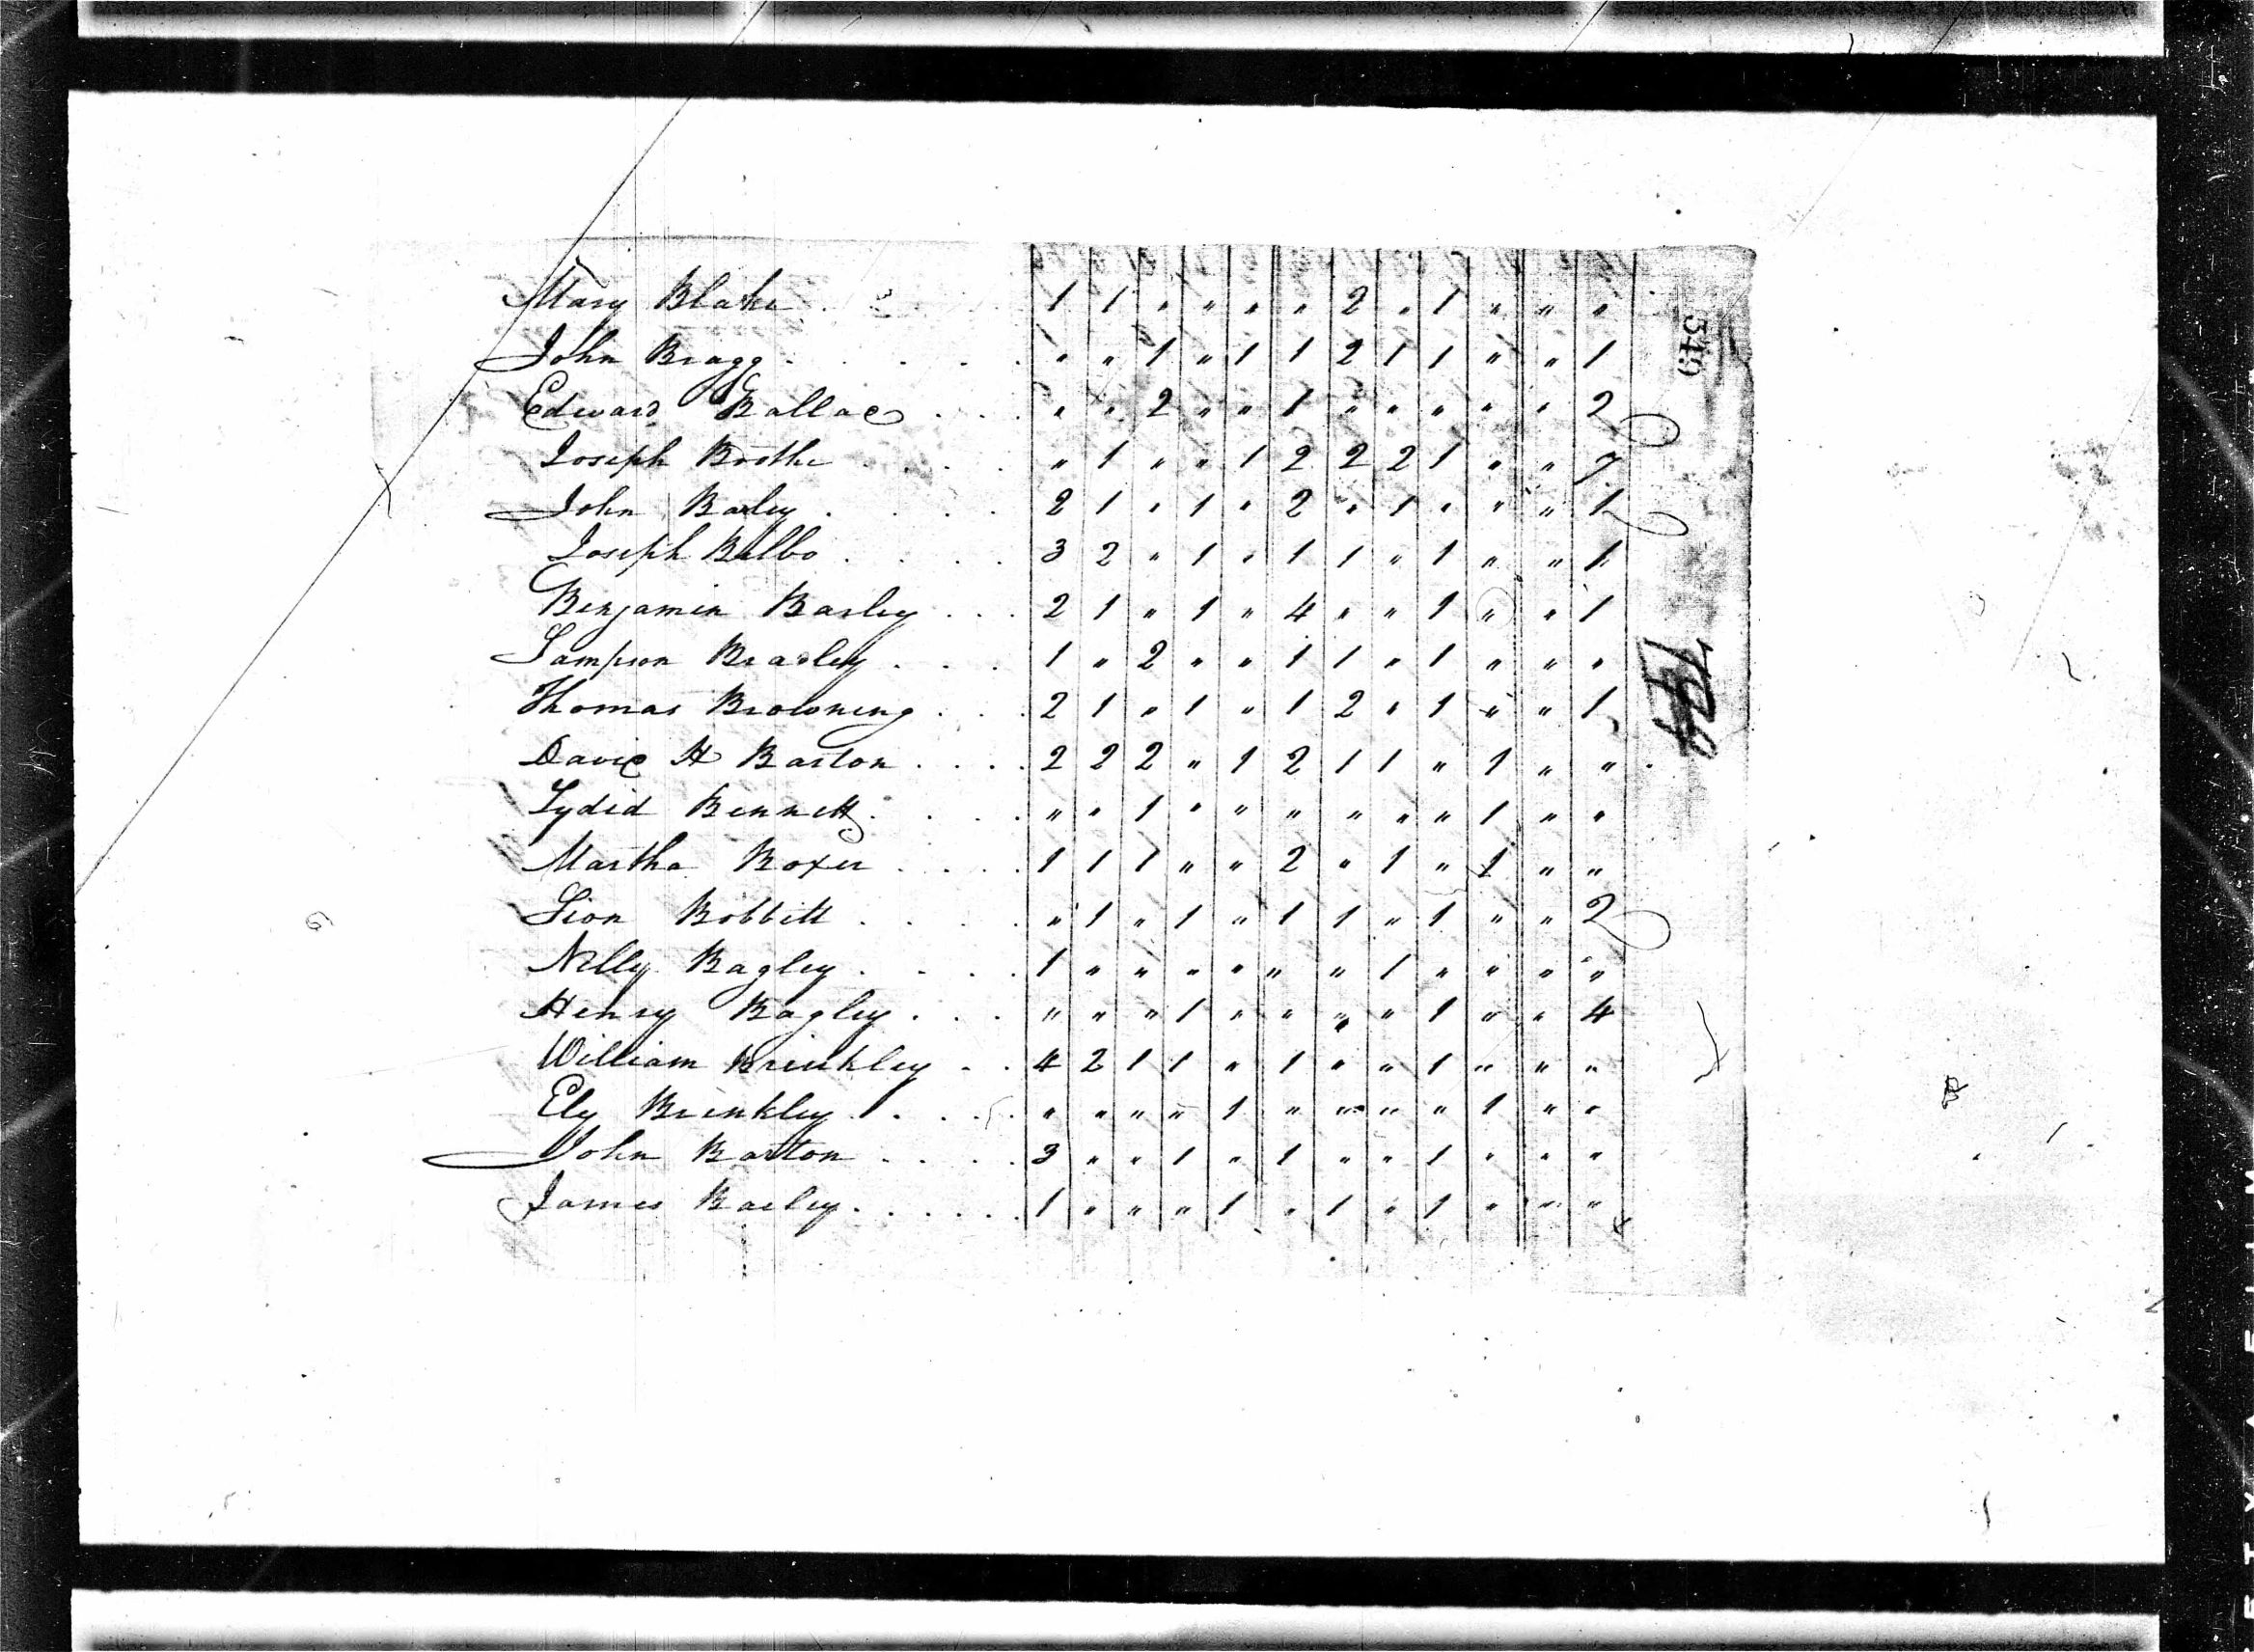 Mary Blake . . . 1 1 " " " " 2 " 1 " " "
John Bragg . . . . . " " 1 " 1 1 2 1 1 " " 1
Edward Ballad . . . " " 2 " " 1 " " " " " 2
Joseph Boothe . . . . " 1 " " 1 2 2 2 1 " " 7
John Baily . . . . 2 1 " 1 " 2 " 1 " " " 1
Joseph Bilbo . . . . 3 2 " 1 " 1 1 " 1 " " 1
Benjamin Basley . . . 2 1 " 1 " 4 " " 1 " " 1
Sampson Bradley . . . 1 " 2 " " 1 1 " 1 " " "
Thomas Browning . . . 2 1 " 1 " 1 2 " 1 " " 1
David H Barton . . . . 2 2 2 " 1 2 1 1 " 1 " "
Lydid Bennett . . . . " " 1 " " " " " " 1 " "
Martha Boxer . . . . 1 1 1 " " 2 " 1 " 1 " "
Sion Bobbitt . . . . " 1 " 1 " 1 1 " 1 " " 2
Nelly Bagley . . . . 1 " " " " " " 1 " " " "
Henry Bagley . . . " " " 1 " " " " 1 " " 4
William Brinkley . . 4 2 1 1 " 1 " " 1 " " "
Ely Brinkley . . . . " " " " 1 " " " " 1 " "
John Barton . . . . 3 " " 1 " 1 " " 1 " " "
James Baeley . . . . . . 1 " " " 1 " 1 " 1 " " "
549